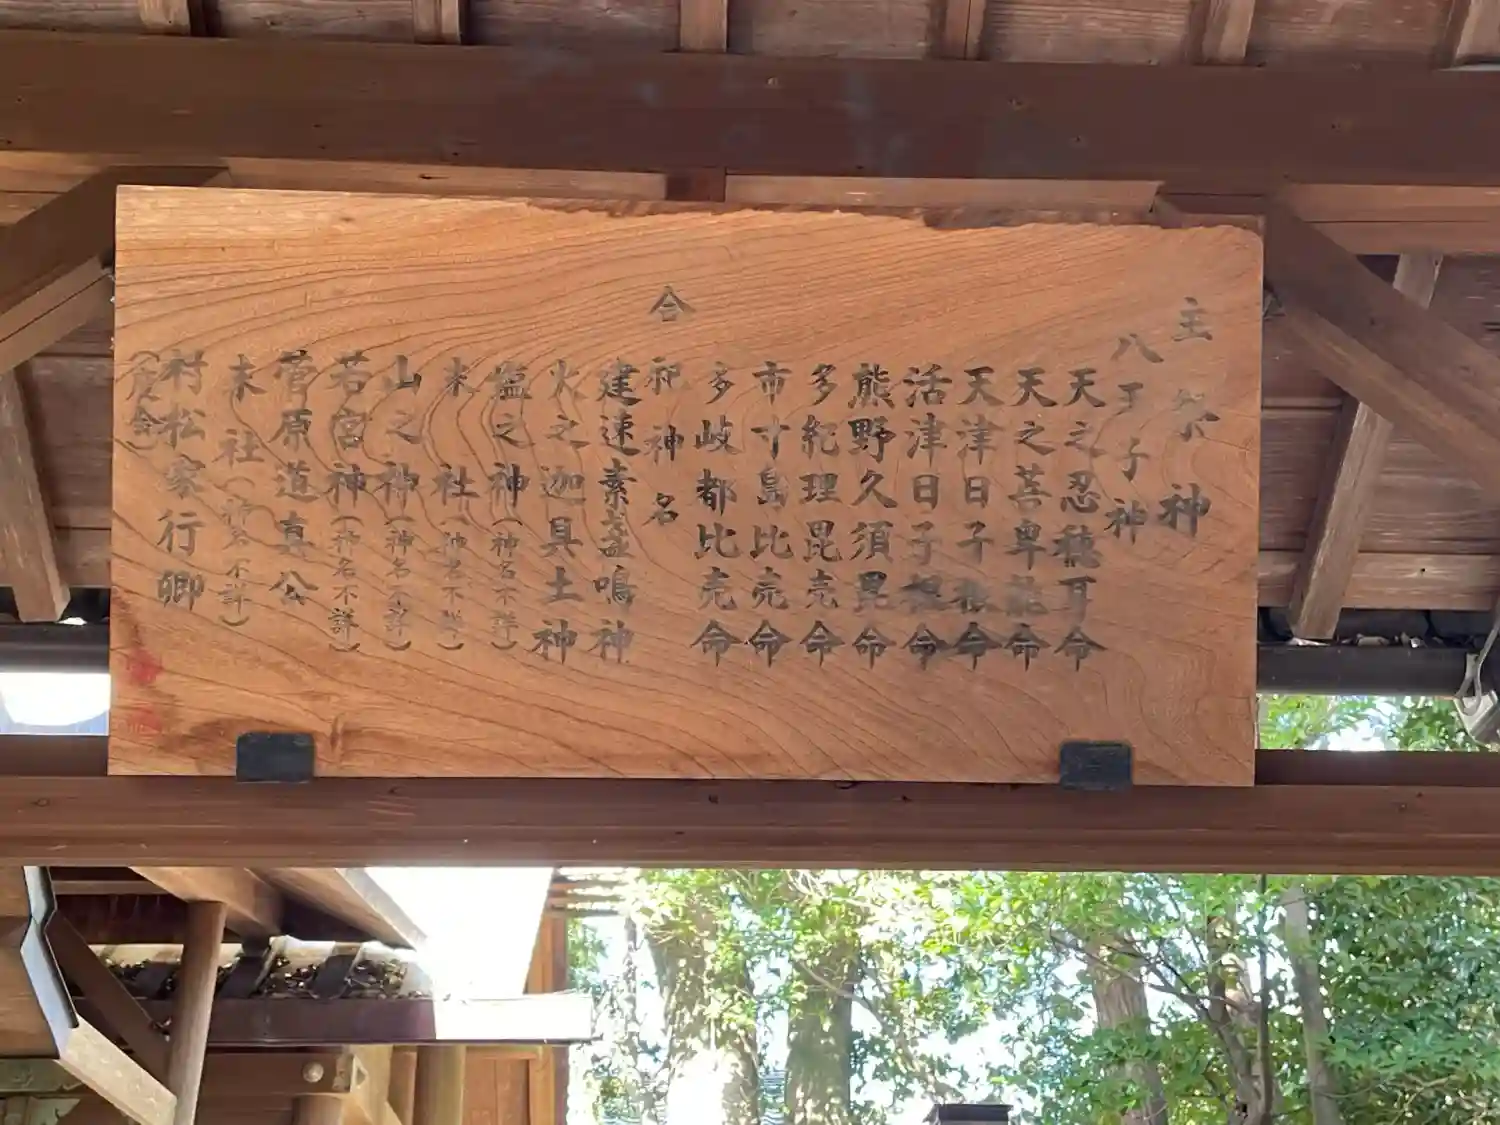 主祭神
八王子神
天之忍穂耳命
天之菩卑能命
天津日子根命
活津日子根命
熊野久須毘命
多紀理毘売命
市寸島比売命
多岐都比売命
合祀神名
建速素盞鳴神
火之迦具土神
塩之神（神名不詳）
末社（神名不詳）
山之神（神名不詳）
若宮神（神名不詳）
菅原道真公
末社（神名不詳）
村松家行卿
（度会）